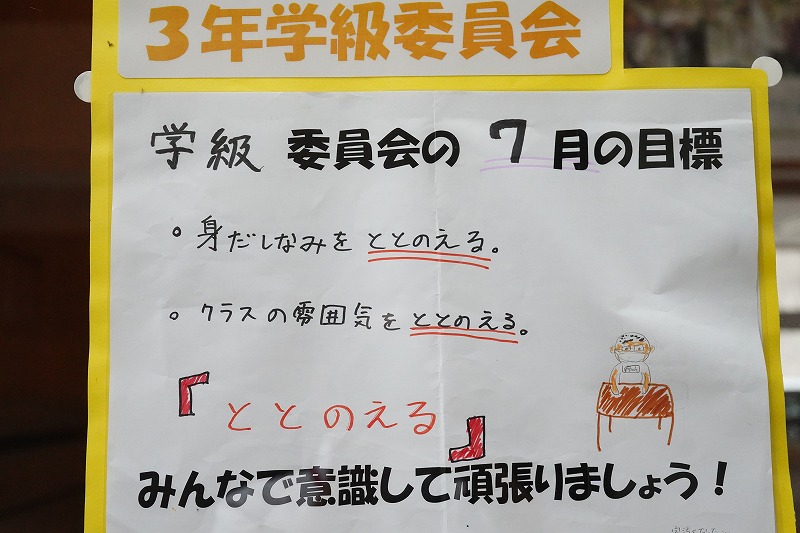 ３年学級委員会
学級 委員会の 7月の目標
。身だしなみを ととのえる。
。クラスの雰囲気を ととのえる。
『ととのえる』
みんなで意識して頑張りましょう！